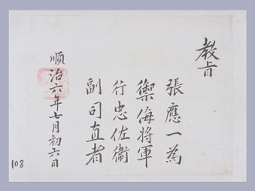 教旨
張應一為
禦侮將軍
行忠佐衛
副司直者
順治六年七月初六日
103